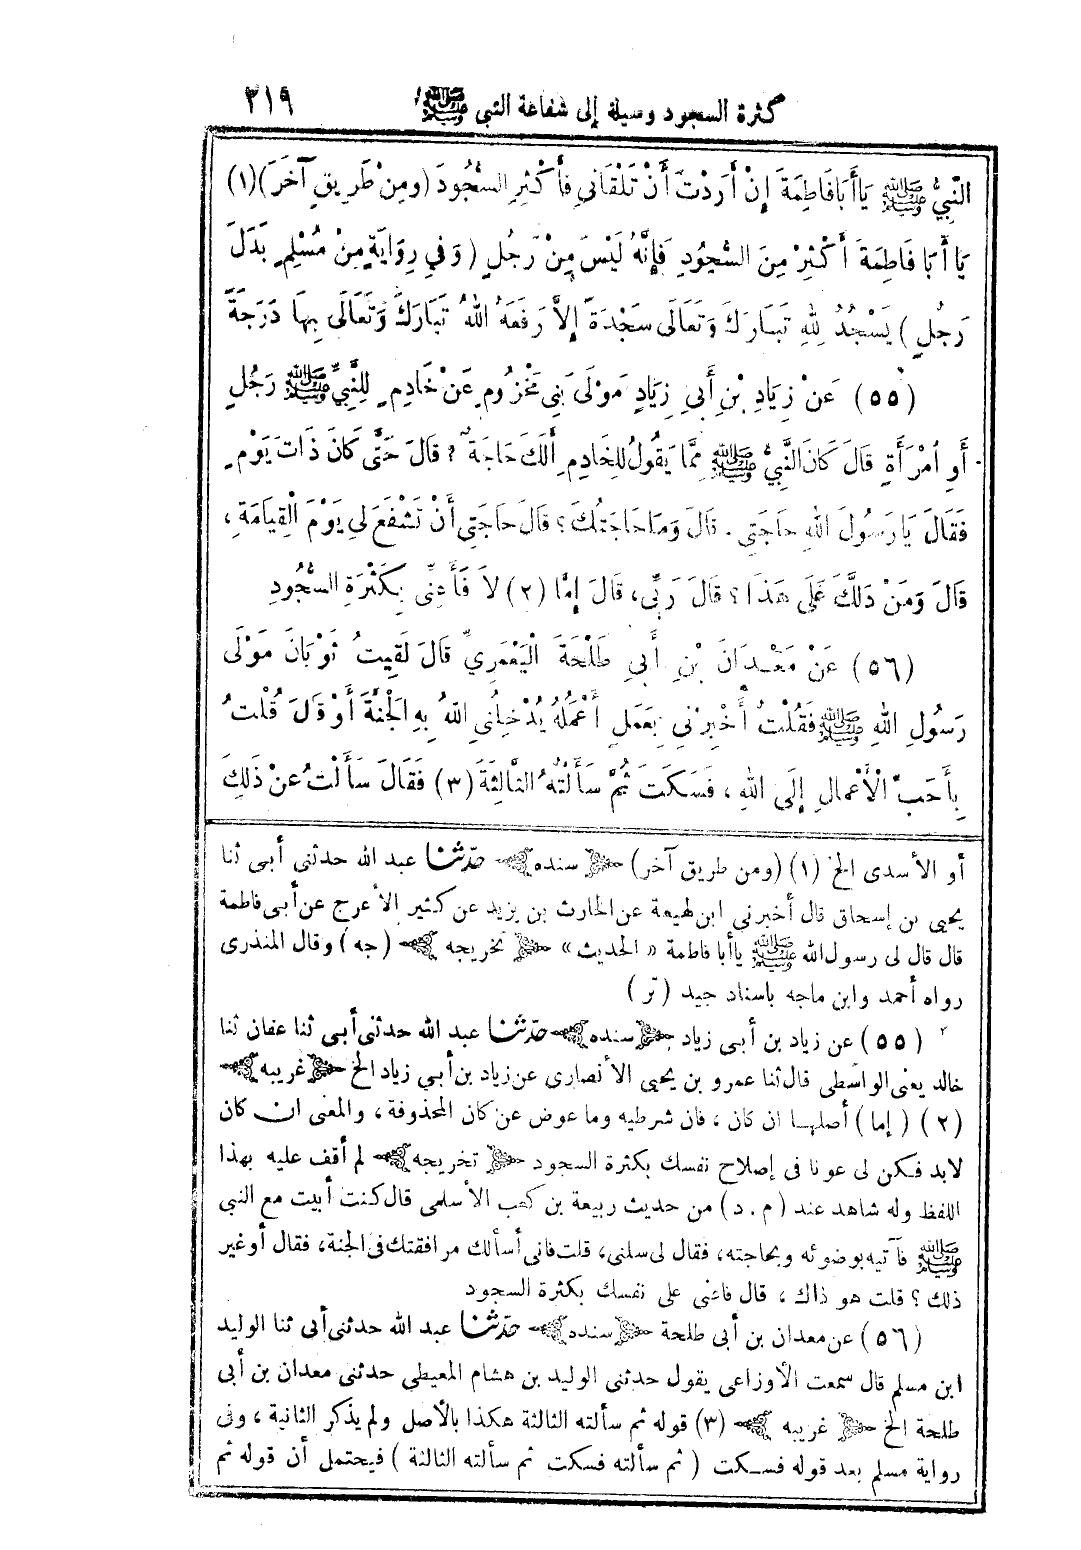 كثرة السجود وسيلة إلى شفاعة النبي ﷺ ٢١٩
النَّبِيُّ ﷺ يَا أَبَا فَاطِمَةَ إِنْ أَرَدْتَ أَنْ تَلْقَانِي فَأَكْثِرِ السُّجُودَ (وَمِنْ طَرِيقٍ آخَرَ)(١)
يَا أَبَا فَاطِمَةَ أَكْثِرْ مِنَ السُّجُودِ فَإِنَّهُ لَيْسَ مِنْ رَجُلٍ (وَفِي رِوَايَةٍ مِنْ مُسْلِمٍ بَدَلَ
رَجُلٍ) يَسْجُدُ لِلهِ تَبَارَكَ وَتَعَالَى سَجْدَةً إِلاَّ رَفَعَهُ اللهُ تَبَارَكَ وَتَعَالَى بِهَا دَرَجَةً
(٥٥) عَنْ زِيَادِ بْنِ أَبِي زِيَادٍ مَوْلَى بَنِي مَخْزُومٍ عَنْ خَادِمٍ لِلنَّبِيِّ ﷺ رَجُلٍ
أَوِ امْرَأَةٍ قَالَ كَانَ النَّبِيُّ ﷺ مِمَّا يَقُولُ لِلْخَادِمِ أَلَكَ حَاجَةٌ ؟ قَالَ حَتَّى كَانَ ذَاتَ يَوْمٍ
فَقَالَ يَا رَسُولَ اللهِ حَاجَتِي . قَالَ وَمَا حَاجَتُكَ ؟ قَالَ حَاجَتِي أَنْ تَشْفَعَ لِي يَوْمَ الْقِيَامَةِ ،
قَالَ وَمَنْ دَلَّكَ عَلَى هَذَا ؟ قَالَ رَبِّي، قَالَ إِمَّا (٢) لاَ فَأَعِنِّي بِكَثْرَةِ السُّجُودِ
(٥٦) عَنْ مَعْدَانَ بْنِ أَبِي طَلْحَةَ الْيَعْمَرِيِّ قَالَ لَقِيتُ ثَوْبَانَ مَوْلَى
رَسُولِ اللهِ ﷺ فَقُلْتُ أَخْبِرْنِي بِعَمَلٍ أَعْمَلُهُ يُدْخِلُنِي اللهُ بِهِ الْجَنَّةَ أَوْ قَالَ قُلْتُ
بِأَحَبِّ الْأَعْمَالِ إِلَى اللهِ ، فَسَكَتَ ثُمَّ سَأَلْتُهُ الثَّالِثَةَ (٣) فَقَالَ سَأَلْتُ عَنْ ذَلِكَ
أو الأسدى الخ (١) (ومن طريق آخر) سنده حدّثنا عبد الله حدثنى أبى ثنا
يحيى بن إسحاق قال أخبرني ابن لهيعة عن الحارث بن يزيد عن كثير الأعرج عن أبى فاطمة
قال قال لى رسول الله ﷺ يا أبا فاطمة « الحديث » تخريجه (جه) وقال المنذرى
رواه أحمد وابن ماجه باسناد جيد (تر)
(٥٥) عن زياد بن أبى زياد سنده حدّثنا عبد الله حدثنى أبى ثنا عفان ثنا
خالد يعنى الواسطى قال ثنا عمرو بن يحيى الأنصارى عن زياد بن أبي زياد الخ غريبه
(٢) (إما) أصلها ان كان ، فان شرطيه وما عوض عن كان المحذوفة ، والمعنى ان كان
لابد فكن لى عونا فى إصلاح نفسك بكثرة السجود تخريجه لم أقف عليه بهذا
اللفظ وله شاهد عند (م . د) من حديث ربيعة بن كعب الأسلمى قال كنت أبيت مع النبي
ﷺ فآتيه بوضوئه وبحاجته، فقال لى سلنى، قلت فانى أسألك مرافقتك فى الجنة، فقال أو غير
ذلك ؟ قلت هو ذاك ، قال فاعنى على نفسك بكثرة السجود
(٥٦) عن معدان بن أبى طلحة سنده حدّثنا عبد الله حدثنى أبى ثنا الوليد
ابن مسلم قال سمعت الأوزاعى يقول حدثنى الوليد بن هشام المعيطي حدثنى معدان بن أبى
طلحة الخ غريبه (٣) قوله ثم سألته الثالثة هكذا بالأصل ولم يذكر الثانية ، وفى
رواية مسلم بعد قوله فسكت ( ثم سألته فسكت ثم سألته الثالثة ) فيحتمل أن قوله ثم